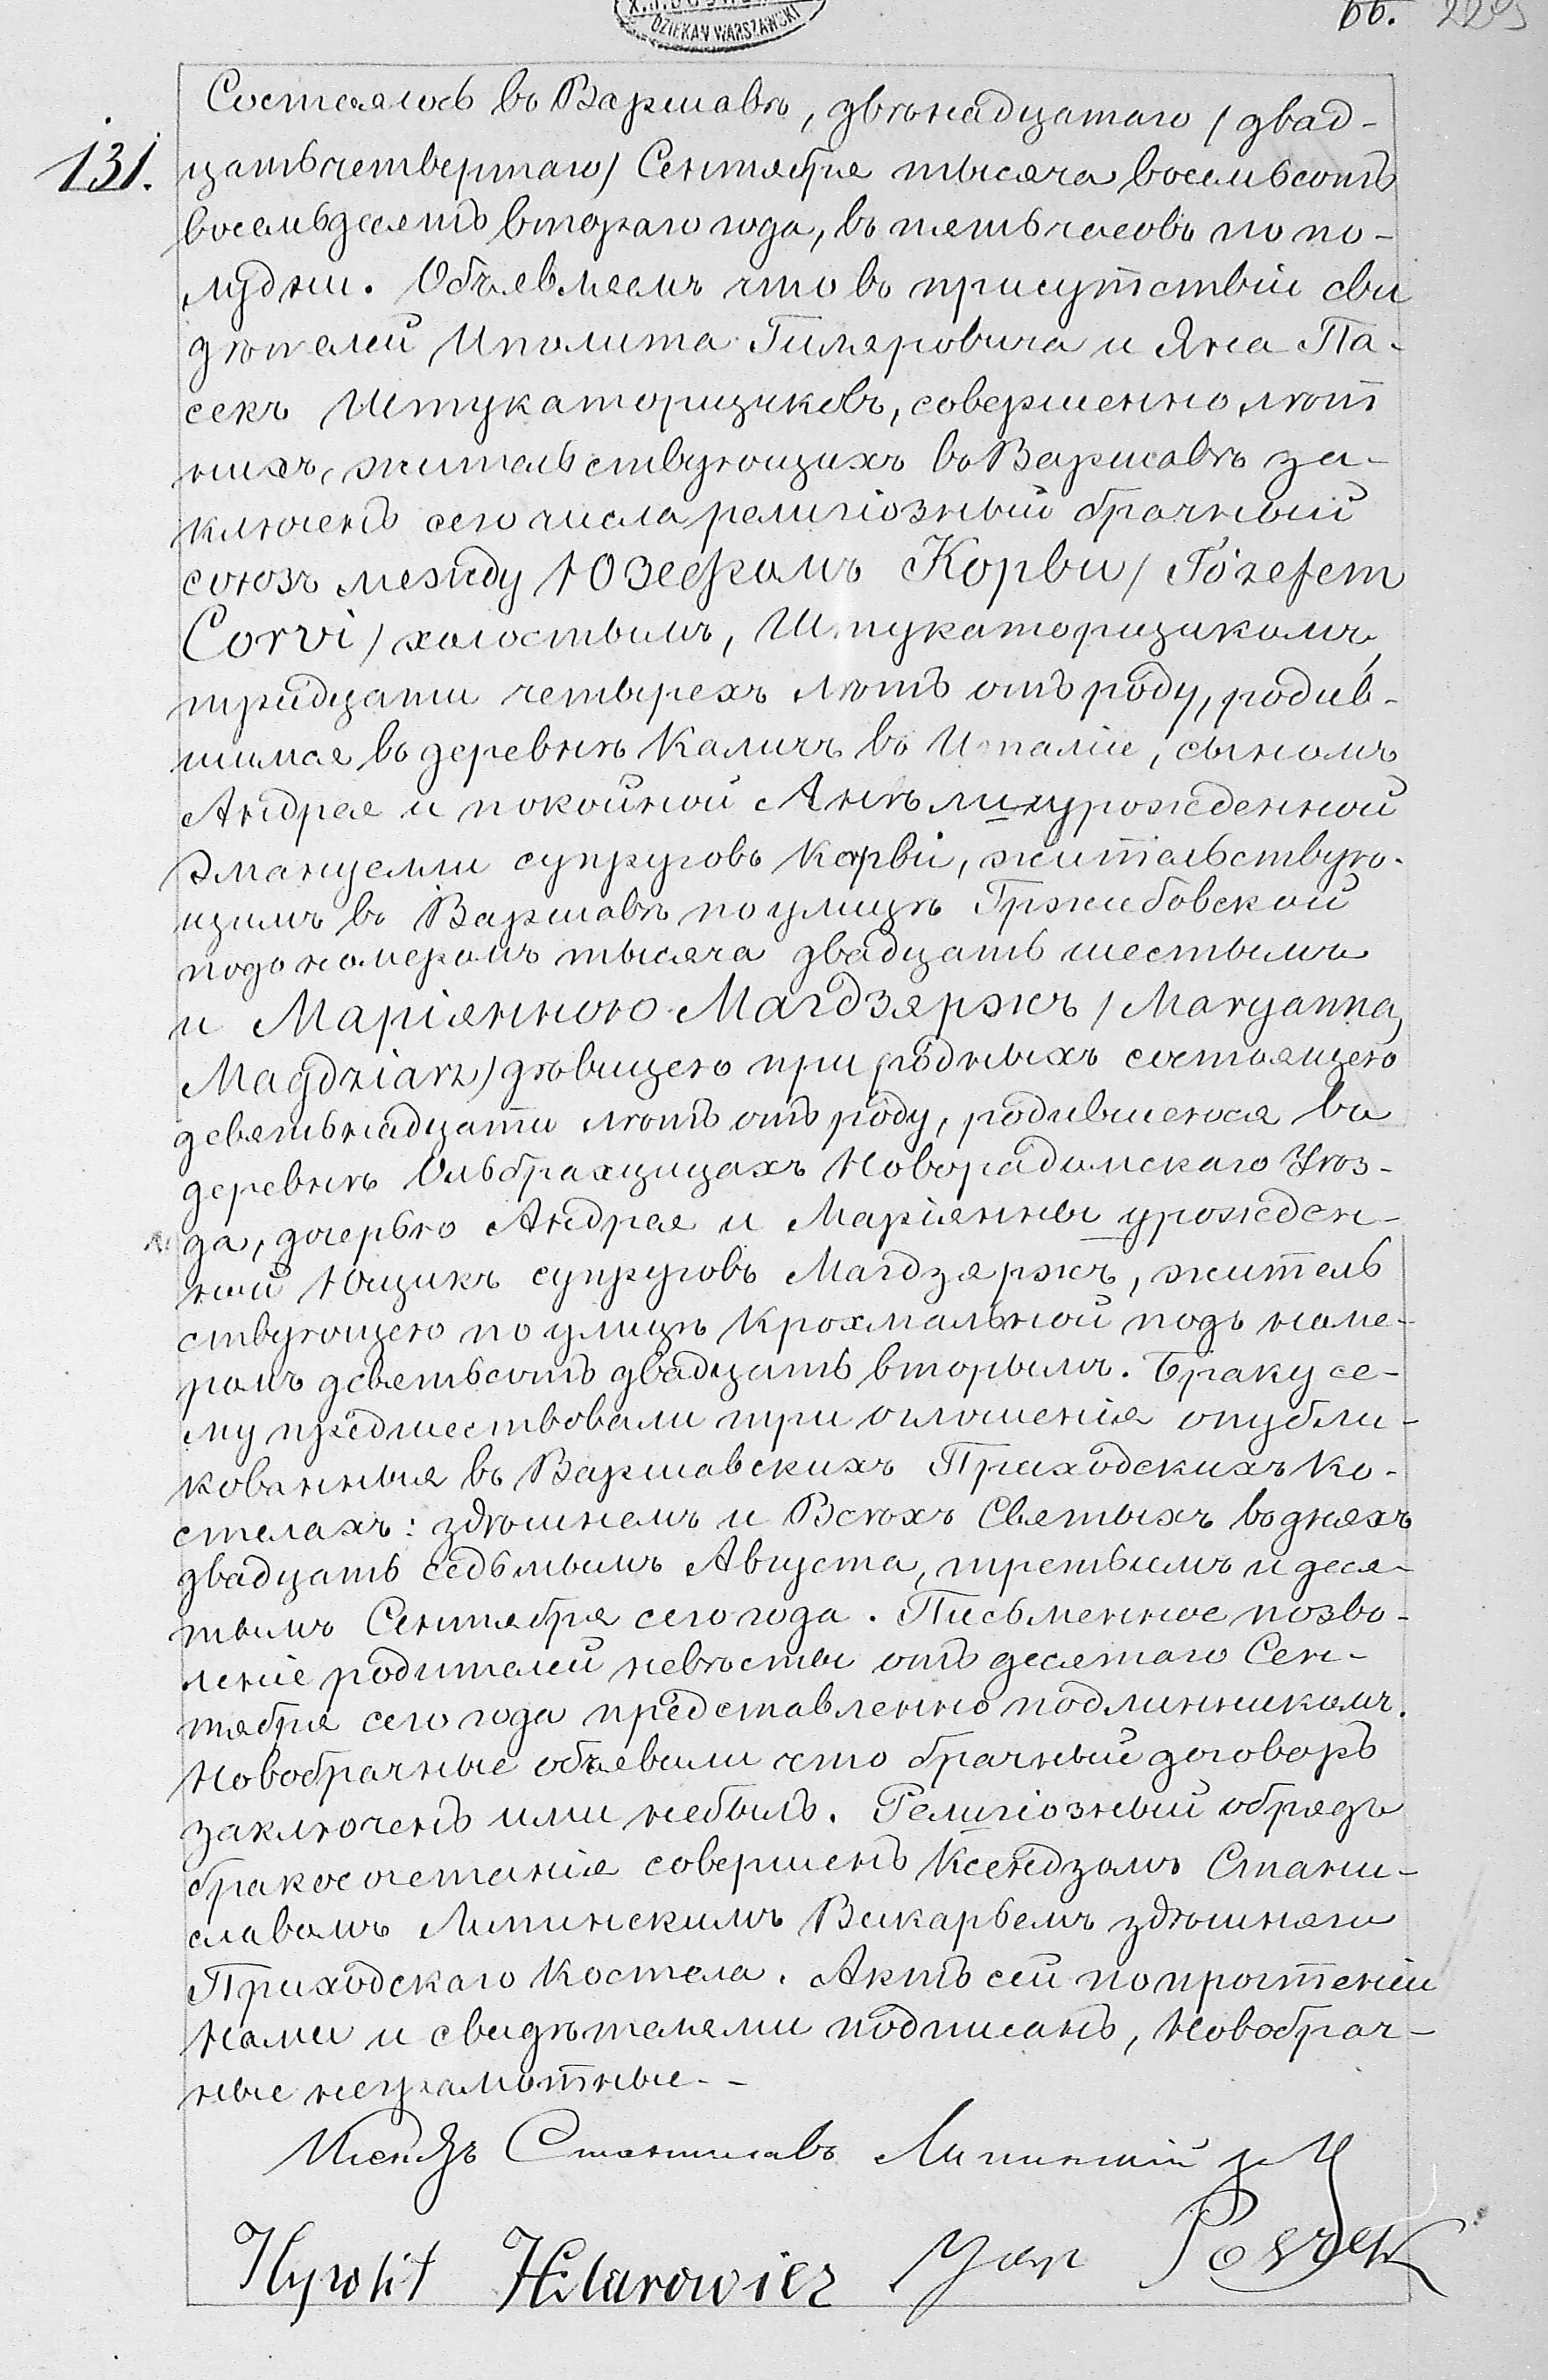 DZIEKAN WARSZAWSKI
66. 229
131.
Состоялось въ Варшавѣ, двѣнадцатаго / двад-
цать четвертаго / Сентября тысяча восемьсотъ
восемьдесятъ втораго года, въ пять часовъ по по-
лудни. Объявляемъ что въ присутствіи сви
дѣтелей Иполита Гиляровича и Яна Па-
секъ Штукаторщиковъ, совершеннолѣт
нихъ, жительствующихъ въ Варшавѣ за-
ключенъ сего числа религіозный брачный
союзъ между Юзефомъ Корви / Józefem
Corvi / холостымъ, Штукаторщикомъ,
тридцати четырехъ лѣтъ отъ роду, родив-
шимся въ деревнѣ Каличъ въ Италіи, сыномъ
Андрея и покойной Анѣли урожденной
Эмануелли супруговъ Корви, жительствую-
щимъ въ Варшавѣ по улицѣ Гржибовской
подъ номеромъ тысяча двадцать шестымъ
и Маріянною Магдзяржъ / Maryanną
Magdziarz / дѣвицею при родныхъ состоящею
девятьнадцати лѣтъ отъ роду, родившеюся въ
деревнѣ Ольбрахцицахъ Новорадомскаго Уѣз-
да, дочерью Андрея и Маріянны урожден-
ной Ющикъ супруговъ Магдзяржъ, житель
ствующею по улицѣ Крохмальной подъ номе-
ромъ девятьсотъ двадцать вторымъ. Браку се-
му предшествовали три оглашенія опубли-
кованныя въ Варшавскихъ Приходскихъ Ко-
стелахъ: здѣшнемъ и Всѣхъ Святыхъ въ дняхъ
двадцать седьмымъ Августа, третьемъ и деся-
тымъ Сентября сего года. Письменное позво-
леніе родителей невѣсты отъ десятаго Сен-
тября сего года представленно подлинникомъ.
Новобрачные объявили что брачный договоръ
заключенъ ими небылъ. Религіозный обрядъ
бракосочетанія совершенъ Ксендзомъ Стани-
славомъ Липинскимъ Викарьемъ здѣшняго
Приходскаго Костела. Актъ сей по прочтеніи
нами и свидѣтелями подписанъ, Новобрач-
ные неграмотные.-
Ксендзъ Станиславъ Липинскій
Hypolit Hilarowicz Jan